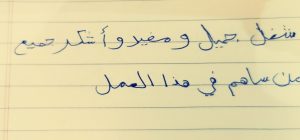 مشغل جميل ومفيد وأشكر جميع
من ساهم في هذا العمل